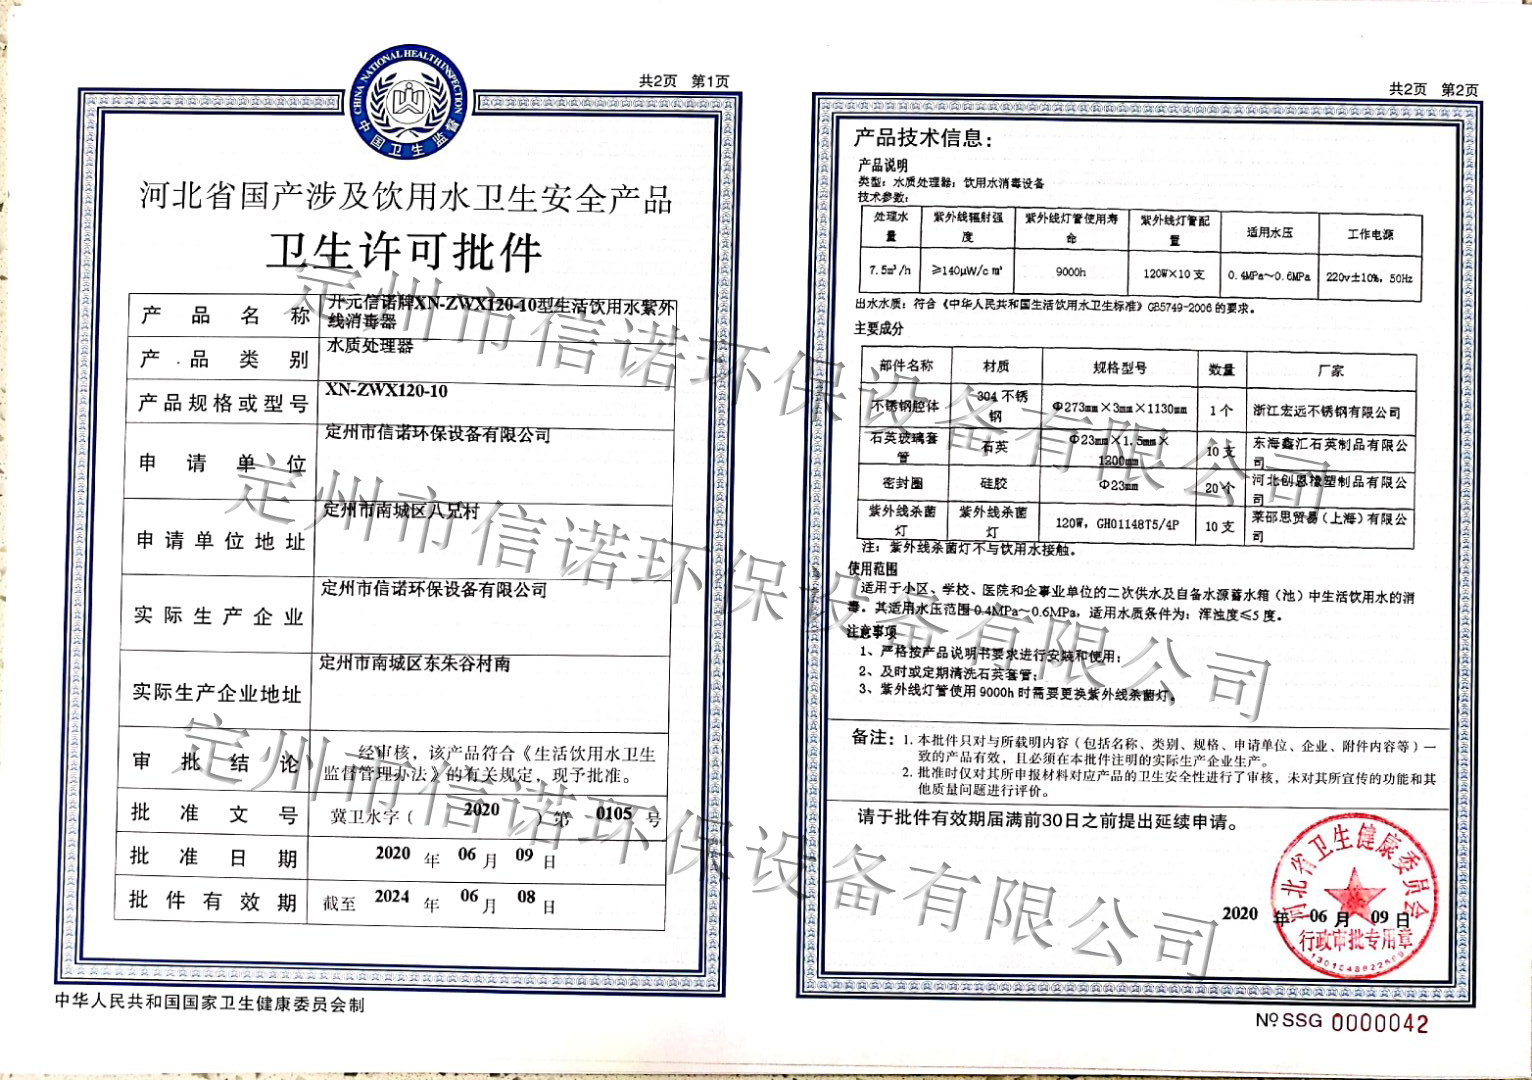 共2页 第1页
CHINA NATIONAL HEALTH INSPECTION
中国卫生监督
河北省国产涉及饮用水卫生安全产品
卫生许可批件
产品名称
开元信诺牌XN-ZWX120-10型生活饮用水紫外
线消毒器
产品类别
水质处理器
产品规格或型号
XN-ZWX120-10
申请单位
定州市信诺环保设备有限公司
申请单位地址
定州市南城区八兄村
实际生产企业
定州市信诺环保设备有限公司
实际生产企业地址
定州市南城区东朱谷村南
审批结论
经审核，该产品符合《生活饮用水卫生
监督管理办法》的有关规定，现予批准。
批准文号
冀卫水字（ 2020 ）第 0105 号
批准日期
2020 年 06 月 09 日
批件有效期
截至 2024 年 06 月 08 日
中华人民共和国国家卫生健康委员会制
共2页 第2页
产品技术信息：
产品说明
类型：水质处理器；饮用水消毒设备
技术参数：
处理水量 紫外线辐射强度 紫外线灯管使用寿命 紫外线灯管配置 适用水压 工作电源
7.5m³/h ≥140μW/cm² 9000h 120W×10支 0.4MPa～0.6MPa 220v±10%，50Hz
出水水质：符合《中华人民共和国生活饮用水卫生标准》GB5749-2006的要求。
主要成分
部件名称 材质 规格型号 数量 厂家
不锈钢腔体 304不锈钢 Φ273mm×3mm×1130mm 1个 浙江宏远不锈钢有限公司
石英玻璃套管 石英 Φ23mm×1.5mm×1200mm 10支 东海鑫汇石英制品有限公司
密封圈 硅胶 Φ23mm 20个 河北创恩橡塑制品有限公司
紫外线杀菌灯 紫外线杀菌灯 120W，GH01148T5/4P 10支 莱邵思贸易（上海）有限公司
注：紫外线杀菌灯不与饮用水接触。
使用范围
适用于小区、学校、医院和企事业单位的二次供水及自备水源蓄水箱（池）中生活饮用水的消
毒。其适用水压范围0.4MPa～0.6MPa，适用水质条件为：浑浊度≤5度。
注意事项
1、严格按产品说明书要求进行安装和使用；
2、及时或定期清洗石英套管；
3、紫外线灯管使用9000h时需要更换紫外线杀菌灯。
备注：1. 本批件只对与所载明内容（包括名称、类别、规格、申请单位、企业、附件内容等）一
致的产品有效，且必须在本批件注明的实际生产企业生产。
2. 批准时仅对其所申报材料对应产品的卫生安全性进行了审核，未对其所宣传的功能和其
他质量问题进行评价。
请于批件有效期届满前30日之前提出延续申请。
河北省卫生健康委员会
2020 年 06 月 09 日
行政审批专用章
№ SSG 0000042
定州市信诺环保设备有限公司
定州市信诺环保设备有限公司
定州市信诺环保设备有限公司